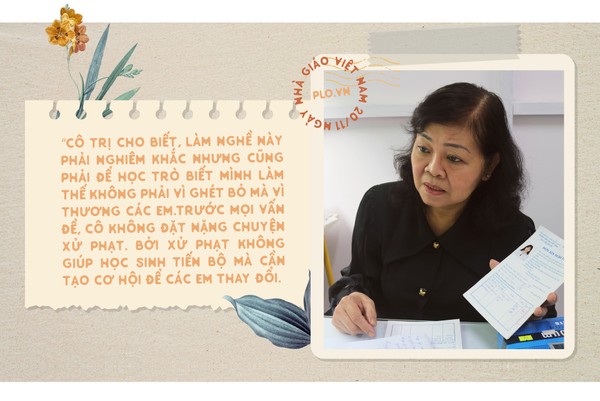 "CÔ TRỊ CHO BIẾT, LÀM NGHỀ NÀY
PHẢI NGHIÊM KHẮC NHƯNG CŨNG
PHẢI ĐỂ HỌC TRÒ BIẾT MÌNH LÀM
THẾ KHÔNG PHẢI VÌ GHÉT BỎ MÀ VÌ
THƯƠNG CÁC EM.TRƯỚC MỌI VẤN
ĐỀ, CÔ KHÔNG ĐẶT NẶNG CHUYỆN
XỬ PHẠT. BỞI XỬ PHẠT KHÔNG
GIÚP HỌC SINH TIẾN BỘ MÀ CẦN
TẠO CƠ HỘI ĐỂ CÁC EM THAY ĐỔI.
NGÀY NHÀ GIÁO VIỆT NAM 20/11
PLO.VN